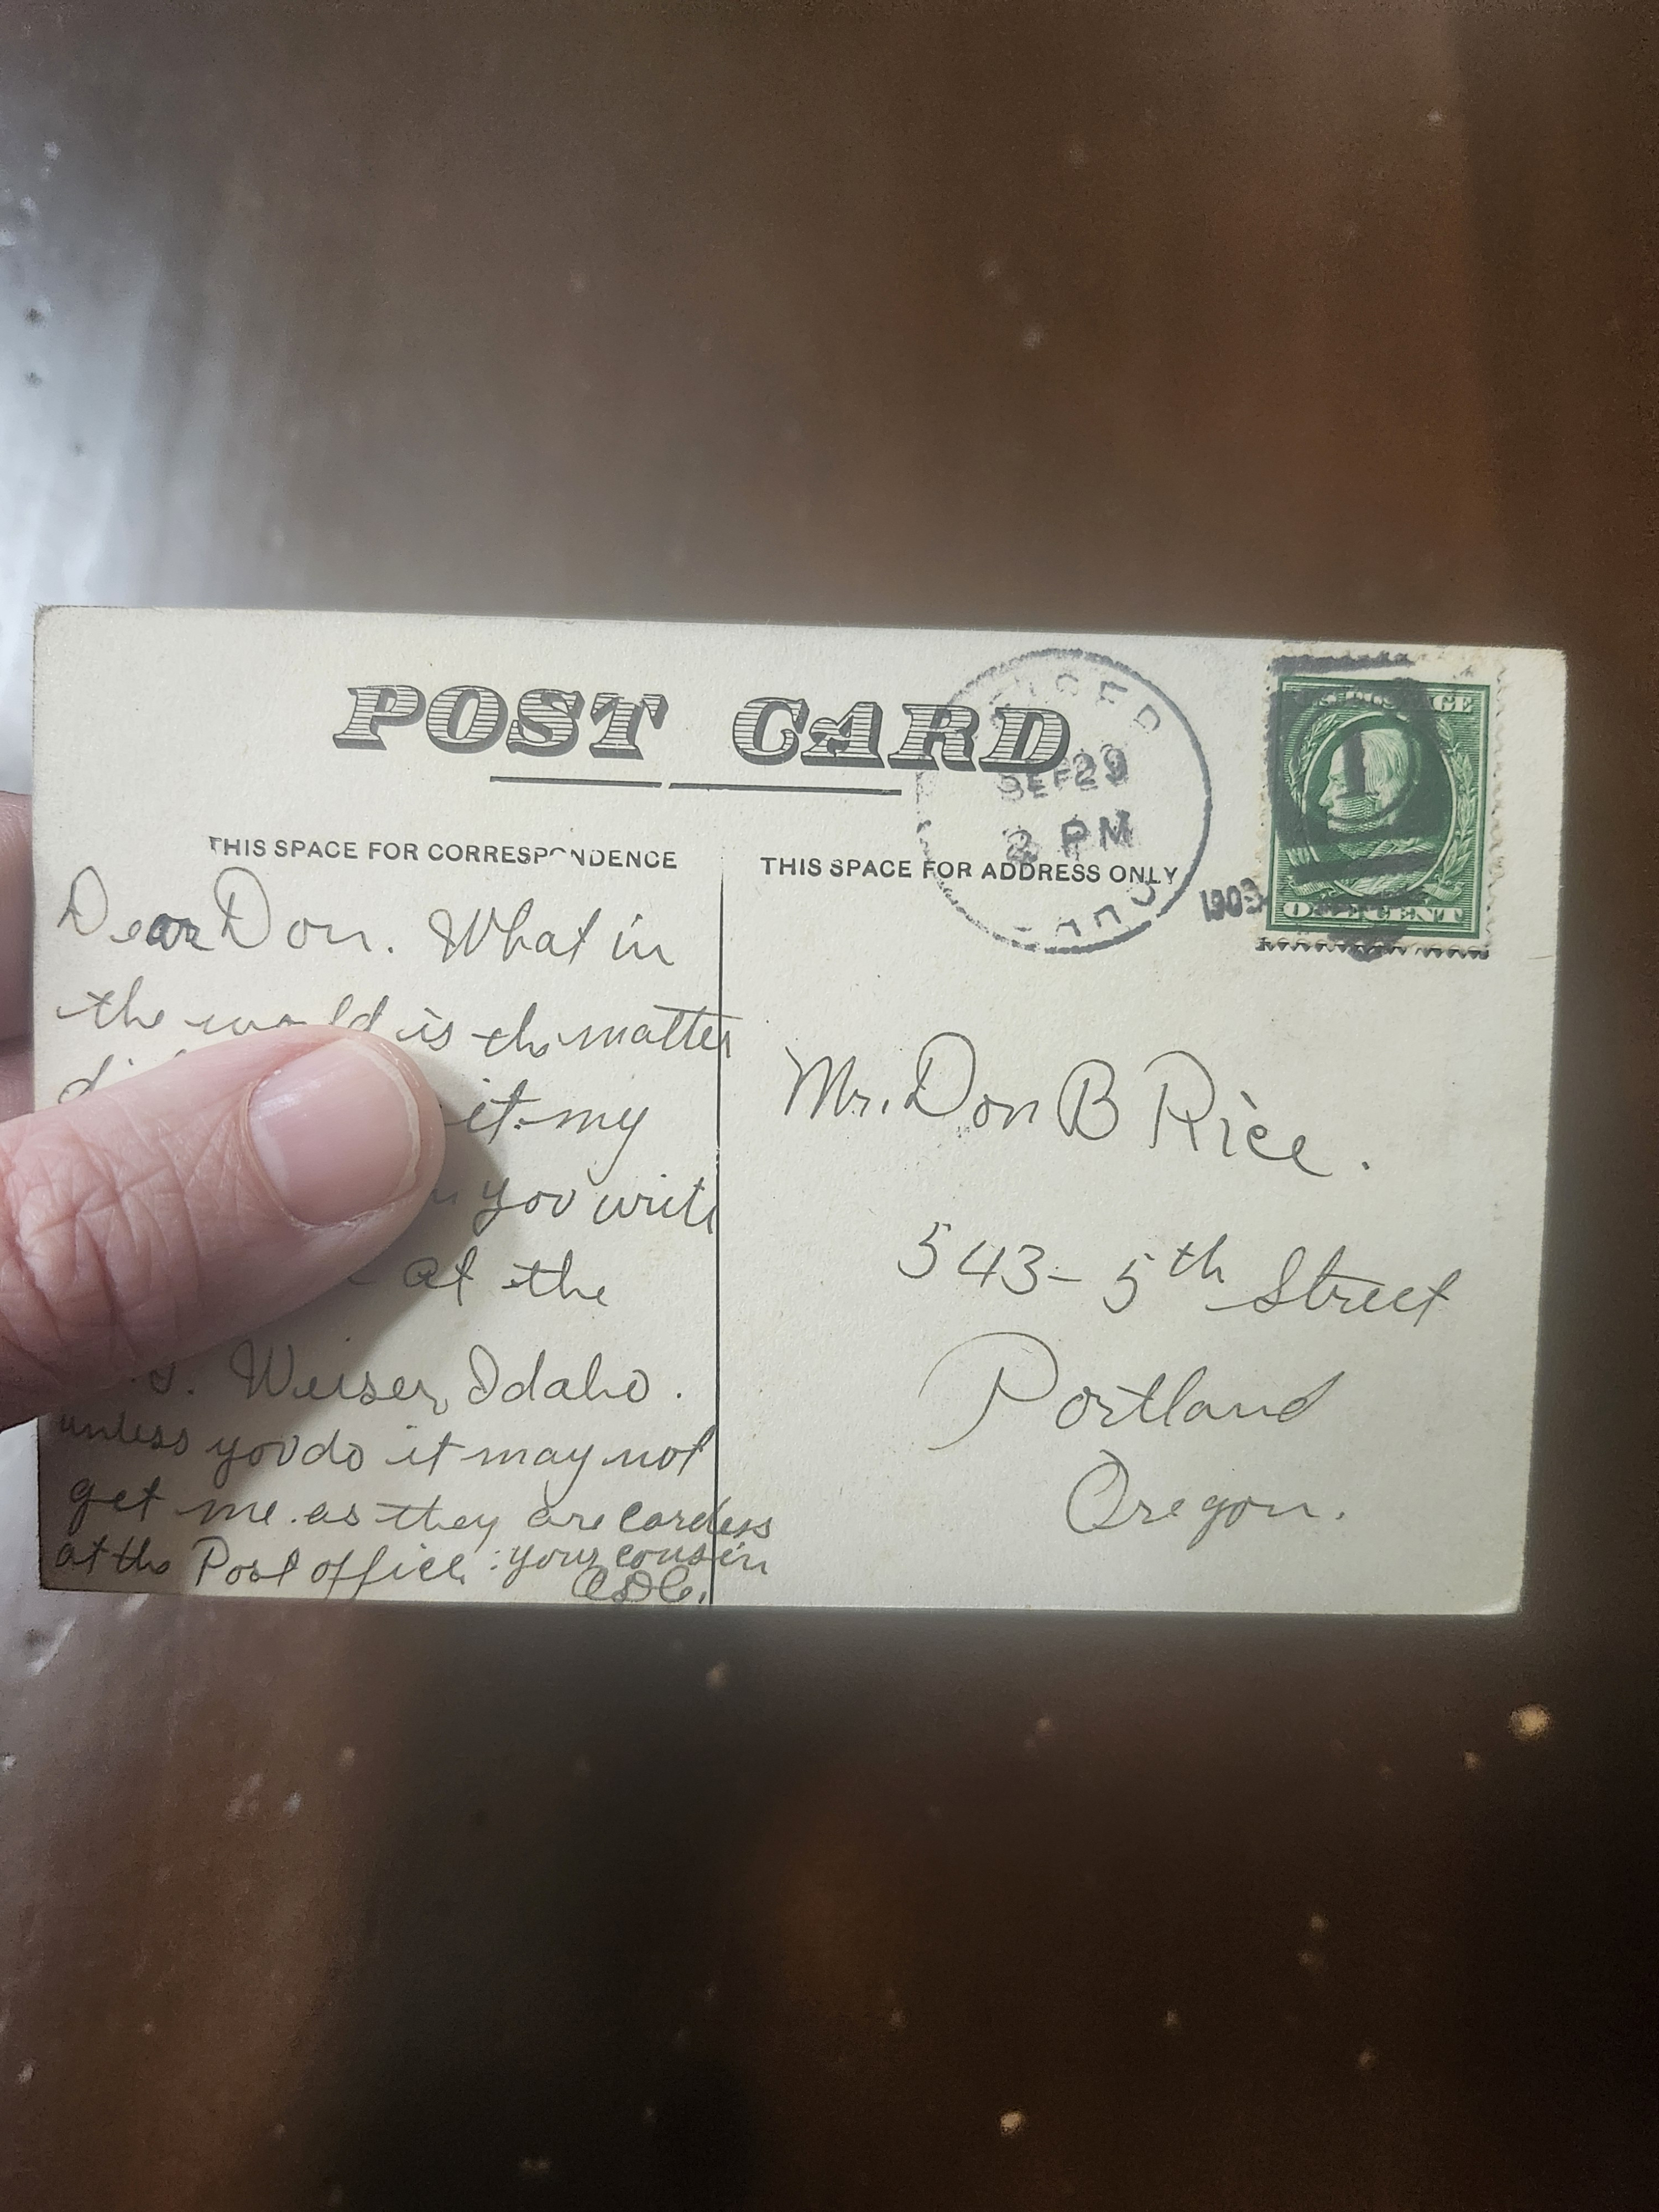 POST CARD
SEP 29
2 PM
1909
THIS SPACE FOR CORRESPONDENCE
THIS SPACE FOR ADDRESS ONLY
ONE CENT
Dear Don. What in
the world is the matter
it my
you write
at the
S. Weiser, Idaho.
unless you do it may not
get me as they are careless
at the Post office. your cousin
Mr. Don B Rice.
543 - 5th Street
Portland
Oregon.